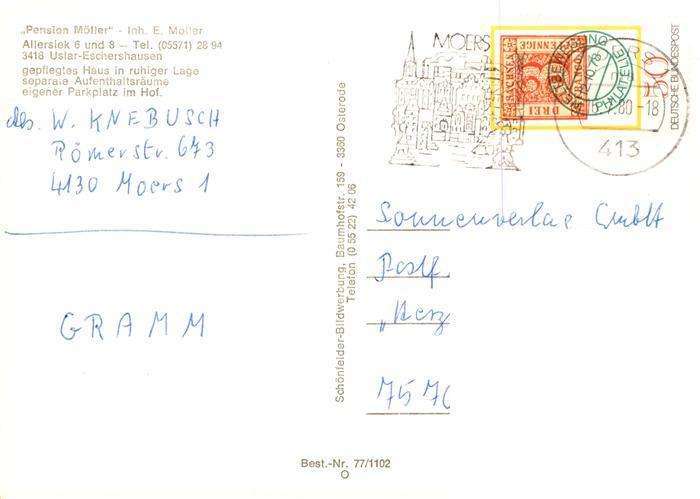 „Pension Möller" - Inh. E. Moller
Allersiek 6 und 8 – Tel. (05571) 28 94
3418 Uslar-Eschershausen
gepflegtes Haus in ruhiger Lage
separate Aufenthaltsräume
eigener Parkplatz im Hof.
Abs. W. KNEBUSCH
Römerstr. 673
4130 Moers 1
GRAMM
Schönfelder-Bildwerbung, Baumhofstr. 159 - 3360 Osterode
Telefon (0 55 22) 42 06
MOERS
DREI PFENNIGE
SACHSEN
PHILATELIE
80-18
413
50
DEUTSCHE BUNDESPOST
Sonnenverlag GmbH
Postf
„Herz
757
Best.-Nr. 77/1102